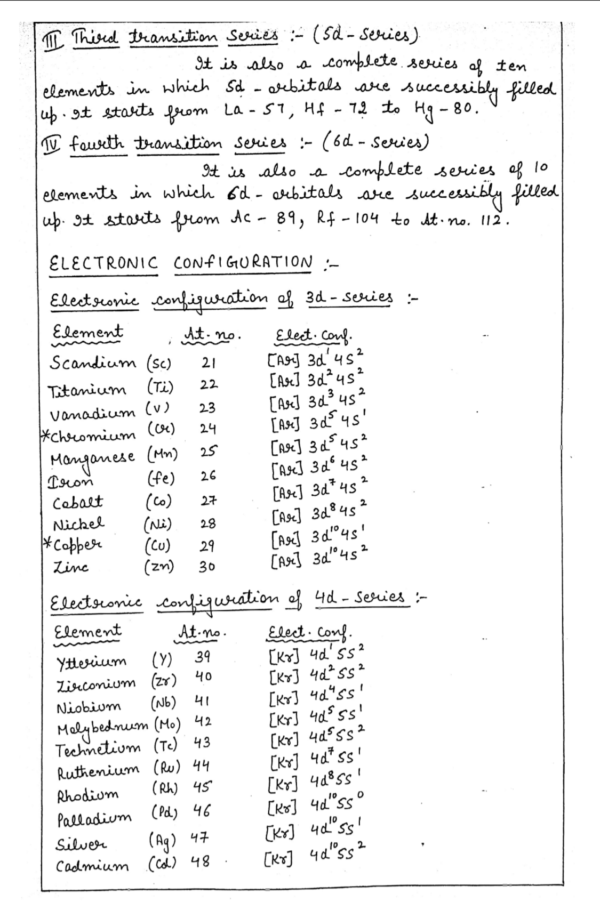 III Third transition series :- (5d-series)
It is also a complete series of ten
elements in which 5d-orbitals are successibly filled
up. It starts from La-57, Hf-72 to Hg-80.
IV fourth transition series :- (6d-series)
It is also a complete series of 10
elements in which 6d-orbitals are successibly filled
up. It starts from Ac-89, Rf-104 to At.no. 112.
ELECTRONIC CONFIGURATION :-
Electronic configuration of 3d-series :-
Element At.no. Elect. Conf.
Scandium (Sc) 21 [Ar] 3d¹4s²
Titanium (Ti) 22 [Ar] 3d²4s²
Vanadium (V) 23 [Ar] 3d³4s²
*Chromium (Cr) 24 [Ar] 3d⁵4s¹
Manganese (Mn) 25 [Ar] 3d⁵4s²
Iron (fe) 26 [Ar] 3d⁶4s²
Cobalt (Co) 27 [Ar] 3d⁷4s²
Nickel (Ni) 28 [Ar] 3d⁸4s²
*Copper (Cu) 29 [Ar] 3d¹⁰4s¹
Zinc (Zn) 30 [Ar] 3d¹⁰4s²
Electronic configuration of 4d-series :-
Element At.no. Elect. Conf.
Ytterium (Y) 39 [Kr] 4d¹5s²
Zirconium (Zr) 40 [Kr] 4d²5s²
Niobium (Nb) 41 [Kr] 4d⁴5s¹
Molybednum (Mo) 42 [Kr] 4d⁵5s¹
Technetium (Tc) 43 [Kr] 4d⁵5s²
Ruthenium (Ru) 44 [Kr] 4d⁷5s¹
Rhodium (Rh) 45 [Kr] 4d⁸5s¹
Palladium (Pd) 46 [Kr] 4d¹⁰5s⁰
Silver (Ag) 47 [Kr] 4d¹⁰5s¹
Cadmium (Cd) 48 [Kr] 4d¹⁰5s²